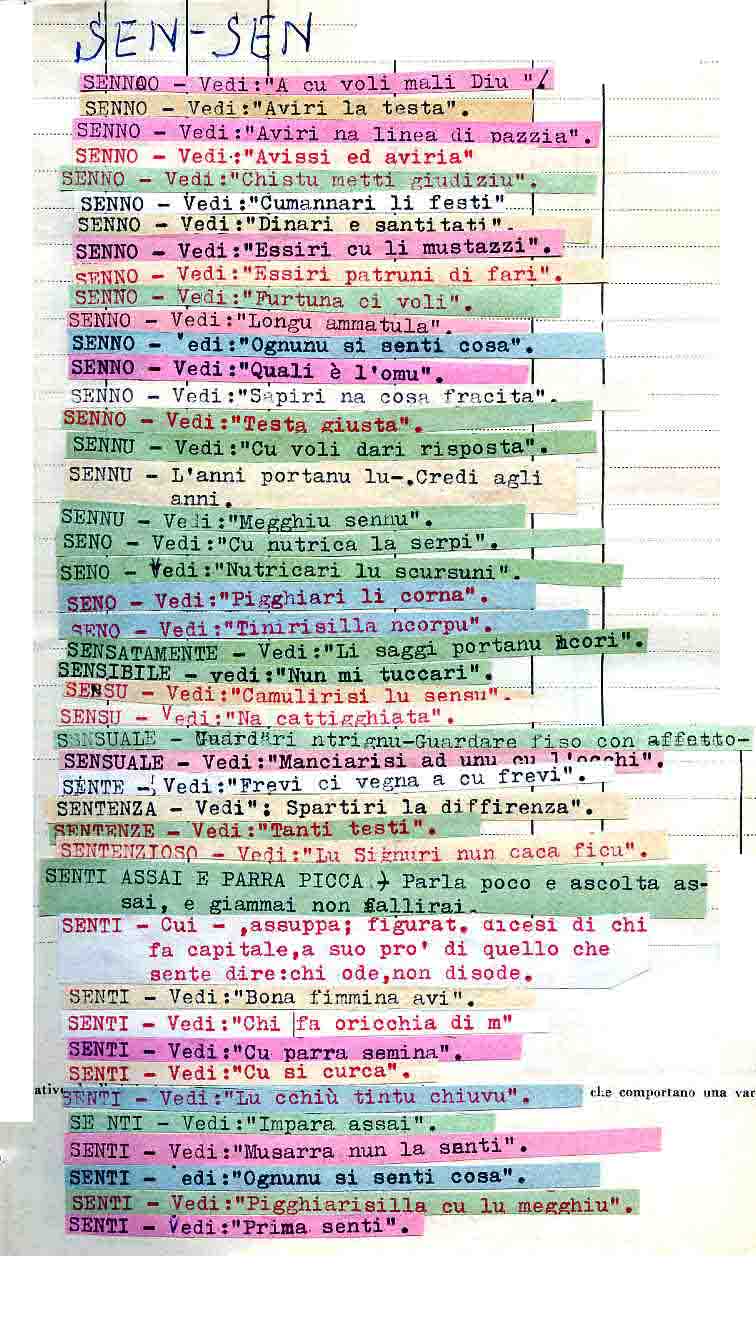 SEN-SEN
SENNO - Vedi:"A cu voli mali Diu "
SENNO - Vedi:"Aviri la testa".
SENNO - Vedi:"Aviri na linea di pazzia".
SENNO - Vedi:"Avissi ed aviria"
SENNO - Vedi:"Chistu metti giudiziu".
SENNO - Vedi:"Cumannari li festi"
SENNO - Vedi:"Dinari e santitati".
SENNO - Vedi:"Essiri cu li mustazzi".
SENNO - Vedi:"Essiri patruni di fari".
SENNO - Vedi:"Furtuna ci voli".
SENNO - Vedi:"Longu ammatula".
SENNO - edi:"Ognunu si senti cosa".
SENNO - Vedi:"Quali è l'omu".
SENNO - Vedi:"Sapiri na cosa fracita".
SENNO - Vedi:"Testa giusta".
SENNU - Vedi:"Cu voli dari risposta".
SENNU - L'anni portanu lu-.Credi agli
anni.
SENNU - Vedi:"Megghiu sennu".
SENO - Vedi:"Cu nutrica la serpi".
SENO - Vedi:"Nutricari lu scursuni".
SENO - Vedi:"Pigghiari li corna".
SENO - Vedi:"Tinirisilla ncorpu".
SENSATAMENTE - Vedi:"Li saggi portanu ncori".
SENSIBILE - vedi:"Nun mi tuccari".
SENSU - Vedi:"Camulirisi lu sensu".
SENSU - Vedi:"Na cattigghiata".
SENSUALE - Guardari ntrignu-Guardare fiso con affetto-
SENSUALE - Vedi:"Manciarisi ad unu cu l'occhi".
SENTE - Vedi:"Frevi ci vegna a cu frevi".
SENTENZA - Vedi": Spartiri la diffirenza".
SENTENZE - Vedi:"Tanti testi".
SENTENZIOSO - Vedi:"Lu Signuri nun caca ficu".
SENTI ASSAI E PARRA PICCA - Parla poco e ascolta as-
sai, e giammai non fallirai.
SENTI - Cui - ,assuppa; figurat. dicesi di chi
fa capitale,a suo pro' di quello che
sente dire:chi ode,non disode.
SENTI - Vedi:"Bona fimmina avi".
SENTI - Vedi:"Chi fa oricchia di m"
SENTI - Vedi:"Cu parra semina".
SENTI - Vedi:"Cu si curca".
ative
SENTI - Vedi:"Lu cchiù tintu chiuvu".
che comportano una var
SE NTI - Vedi:"Impara assai".
SENTI - Vedi:"Musarra nun la senti".
SENTI - edi:"Ognunu si senti cosa".
SENTI - Vedi:"Pigghiarisilla cu lu megghiu".
SENTI - Vedi:"Prima senti".